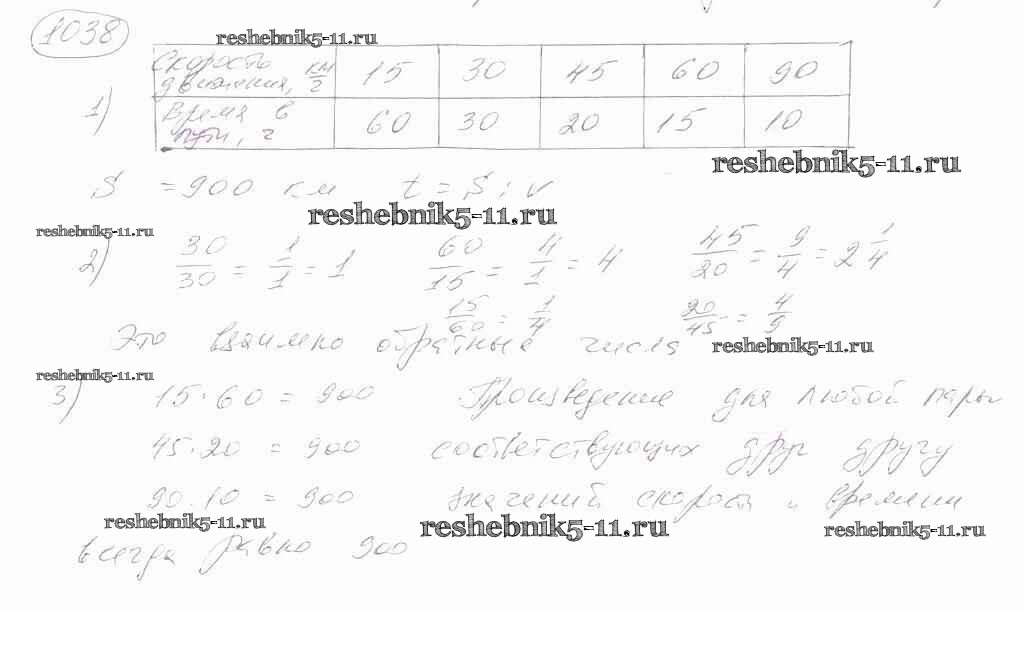 1038
reshebnik5-11.ru
Скорость движения, км/г 15 30 45 60 90
1) Время в пути, г 60 30 20 15 10
reshebnik5-11.ru
S = 900 км t = S : v
reshebnik5-11.ru
reshebnik5-11.ru
2) 30/30 = 1/1 = 1 60/15 = 4/1 = 4 45/20 = 9/4 = 2 1/4
15/60 = 1/4 20/45 = 4/9
Это взаимно обратные числа
reshebnik5-11.ru
reshebnik5-11.ru
3) 15·60 = 900 Произведение для любой пары
45·20 = 900 соответствующих друг другу
90·10 = 900 значений скорости и времени
reshebnik5-11.ru reshebnik5-11.ru reshebnik5-11.ru
всегда равно 900